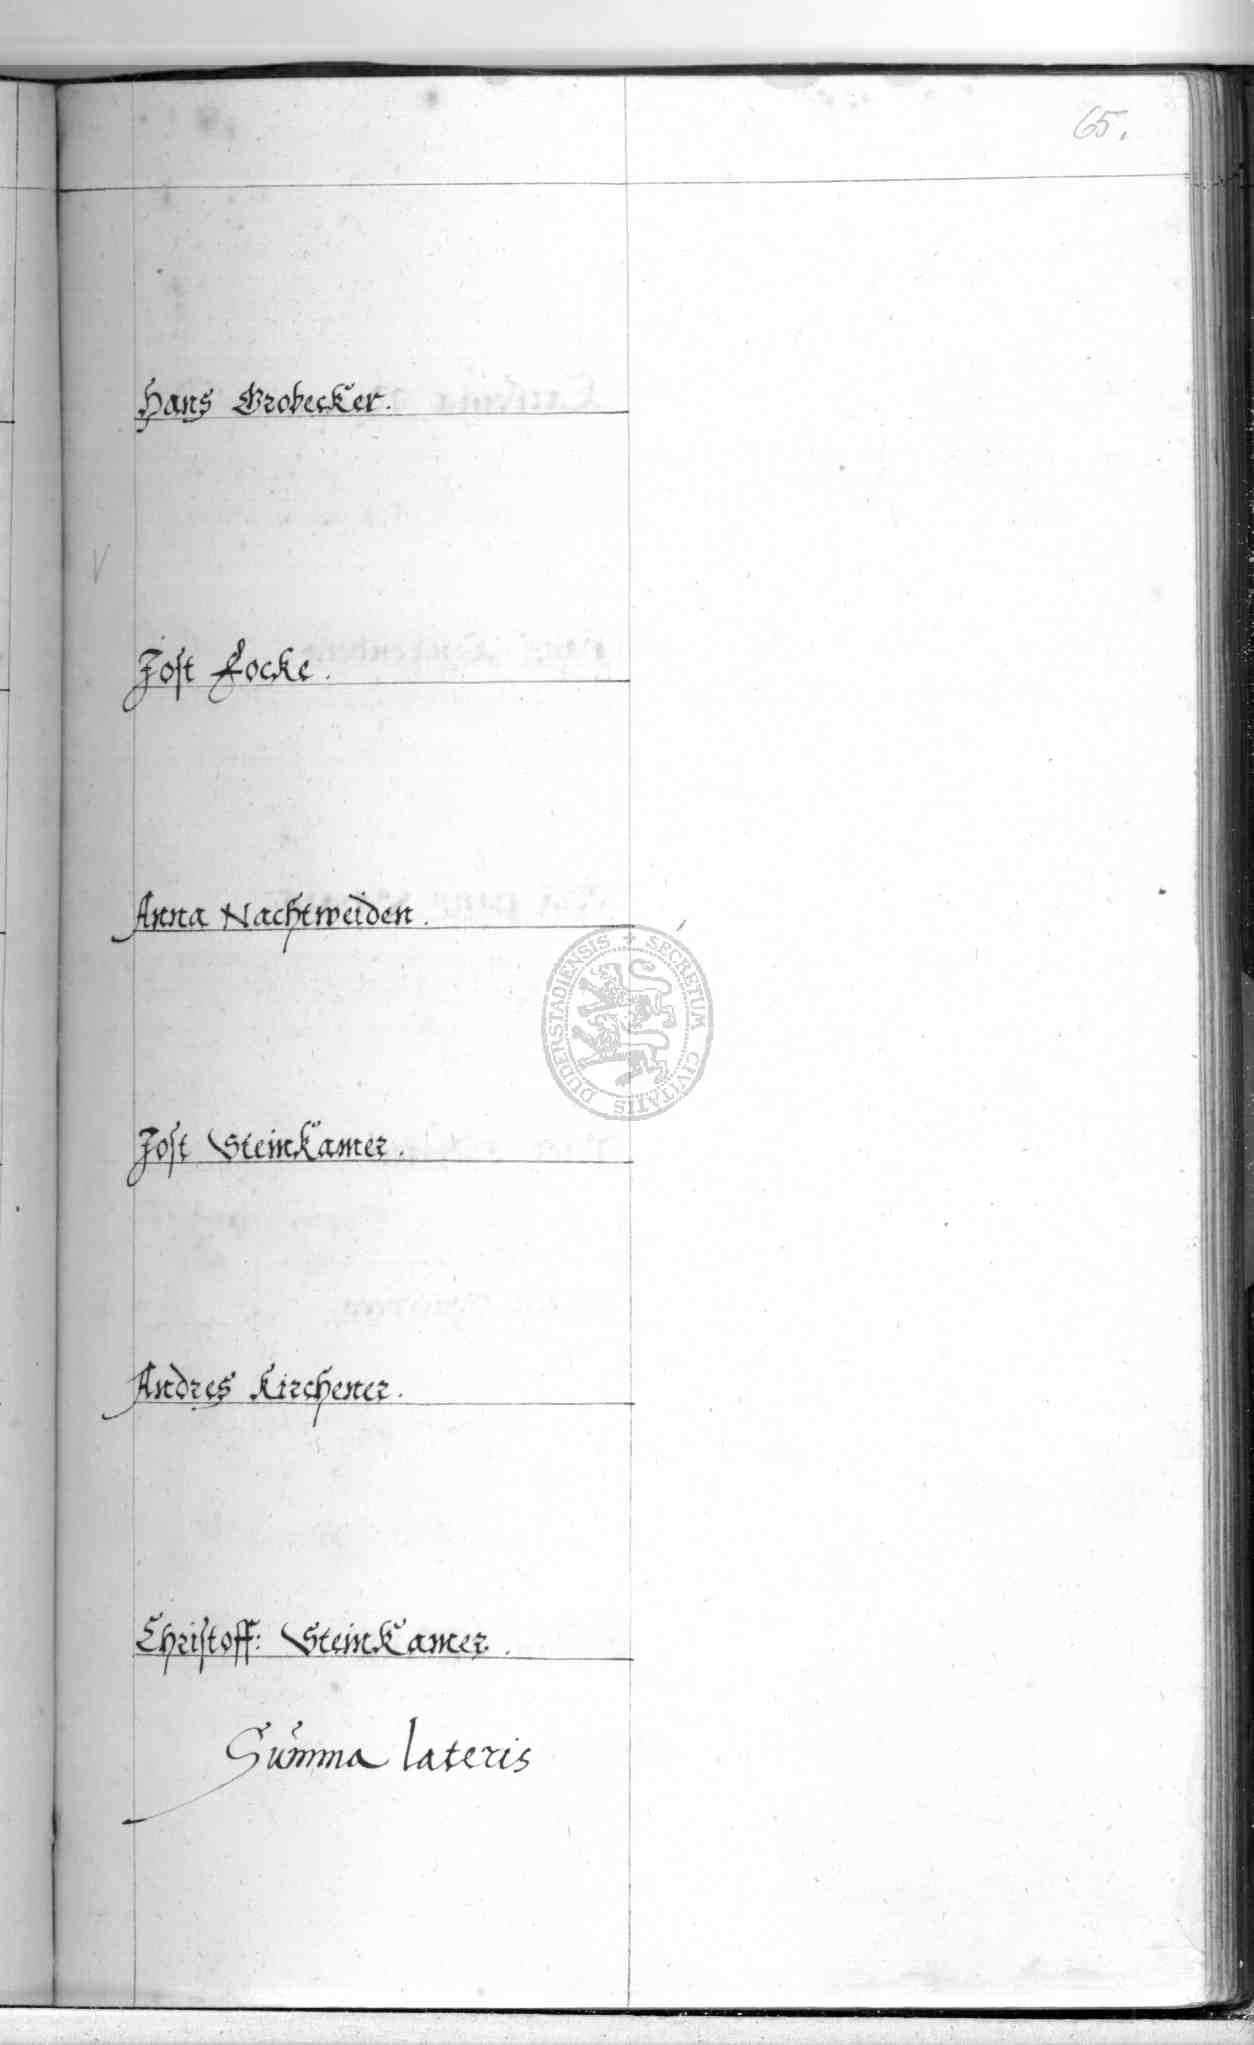 65.
Hans Grobecker.
Jost Focke.
Anna Nachtweiden.
Jost SteinKamer.
Andres Kirchener.
Christoff: SteinKamer.
Summa lateris
DUDERSTADIENSIS + SECRETUM CIVITATIS